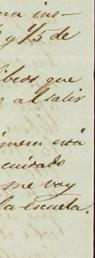 na ins-
y 1/5 de
libros que
al salir
imera está
cuidado
me voy
la escuela.